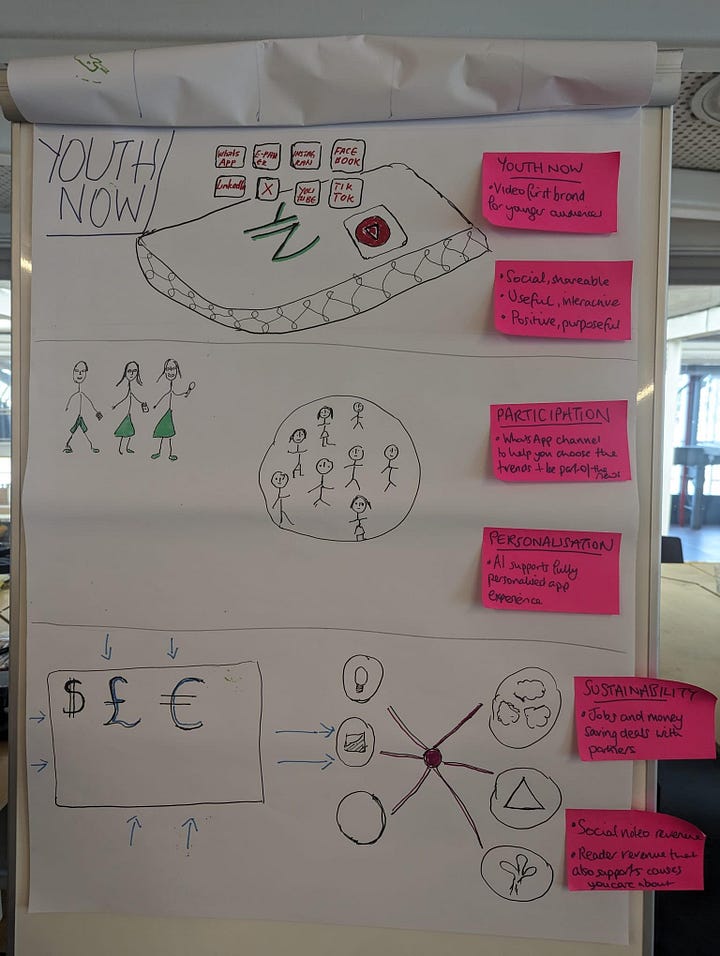 YOUTH
NOW
WHATS
APP
E-PAP
ER
INSTAG
RAM
FACE
BOOK
LinkedIn
X
YOU
TUBE
TIK
TOK
YN
YOUTH NOW
• Video first brand
for younger audiences
• Social, shareable
• Useful, interactive
• Positive, purposeful
PARTICIPATION
• WhatsApp channel
to help you choose the
trends + be part of the
news
PERSONALISATION
• AI supports fully
personalised app
experience
$ £ €
SUSTAINABILITY
• Jobs and money
saving deals with
partners
• Social video revenue
• Reader revenue that
also supports causes
you care about